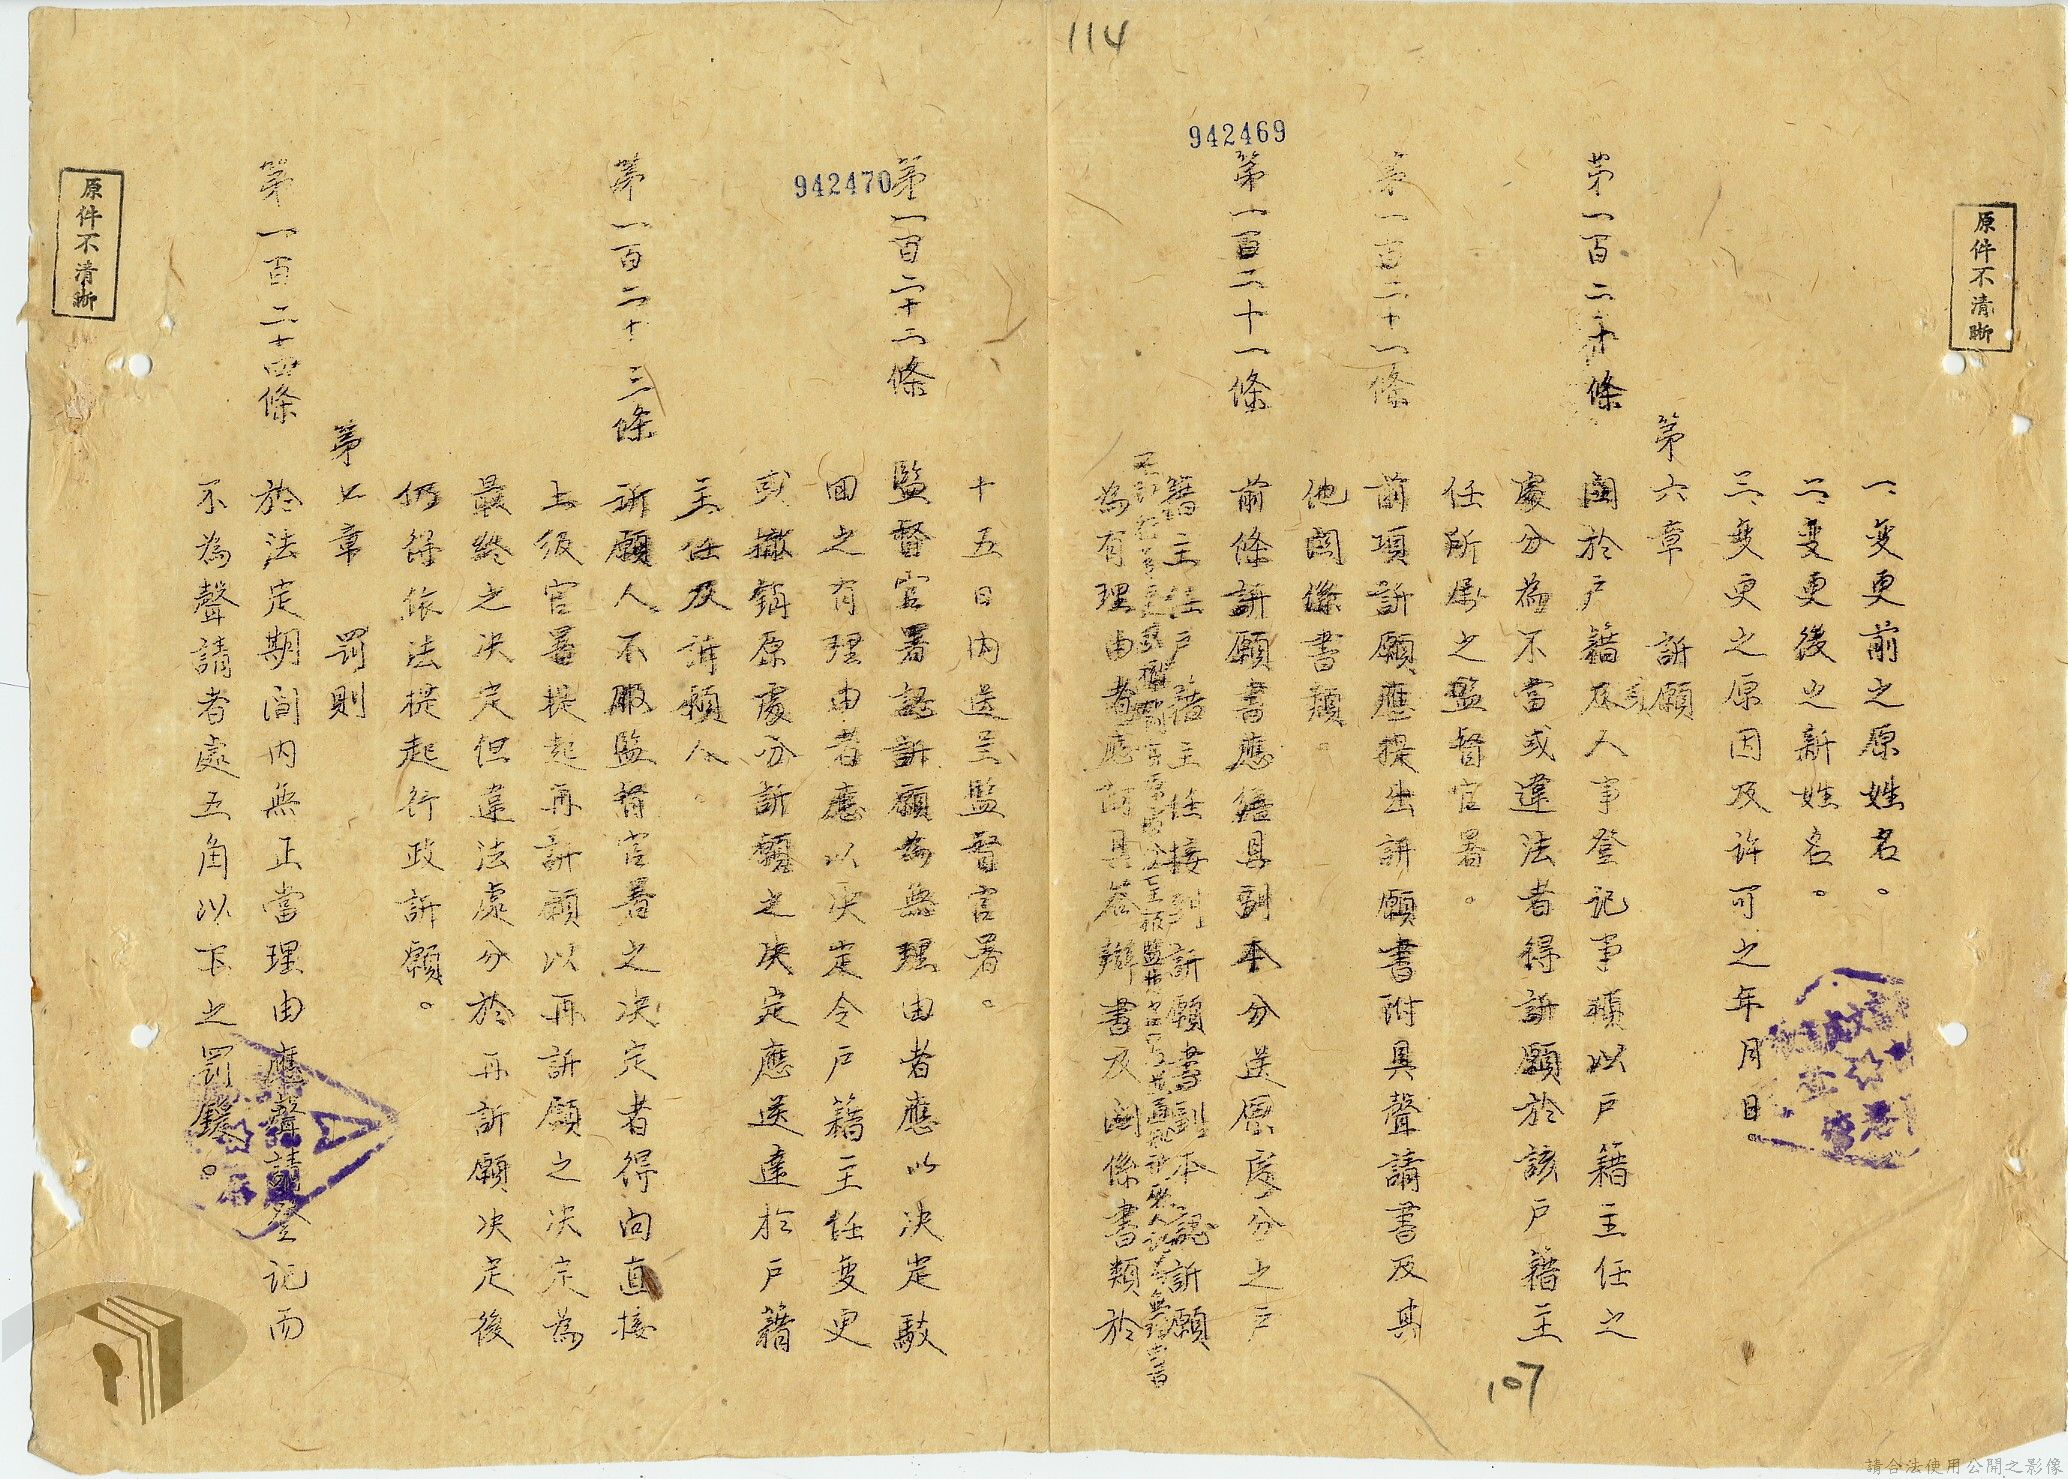 114
942469
原件不清晰
一、变更前之原姓名。
二、变更後之新姓名。
三、变更之原因及許可之年月日。
第六章 訴願
第一百二十條 関於戶籍及人事登記事項以戶籍主任之
處分為不當或違法者得訴願於該戶籍主
任所屬之監督官署。
第一百二十一條 前項訴願應提出訴願書附具聲請書及其
他関係書類。
第一百二十一條 前條訴願書應繕具副本分送原處分之戶
籍主任戶籍主任接到訴願書副本認訴願
為有理由者應 具答辯書及関係書類於
107
942470
十五日內送呈監督官署。
第一百二十二條 監督官署認訴願為無理由者應以决定駁
回之有理由者應以决定令戶籍主任变更
或撤銷原處分訴願之决定應送達於戶籍
主任及訴願人。
第一百二十三條 訴願人不服監督官署之决定者得向直接
上級官署提起再訴願以再訴願之决定為
最終之决定但違法處分於再訴願决定後
仍得依法提起行政訴願。
第七章 罰則
第一百二十四條 於法定期间內無正當理由應聲請登记而
不為聲請者處五角以下之罰鍰。
原件不清晰
請合法使用公開之影像